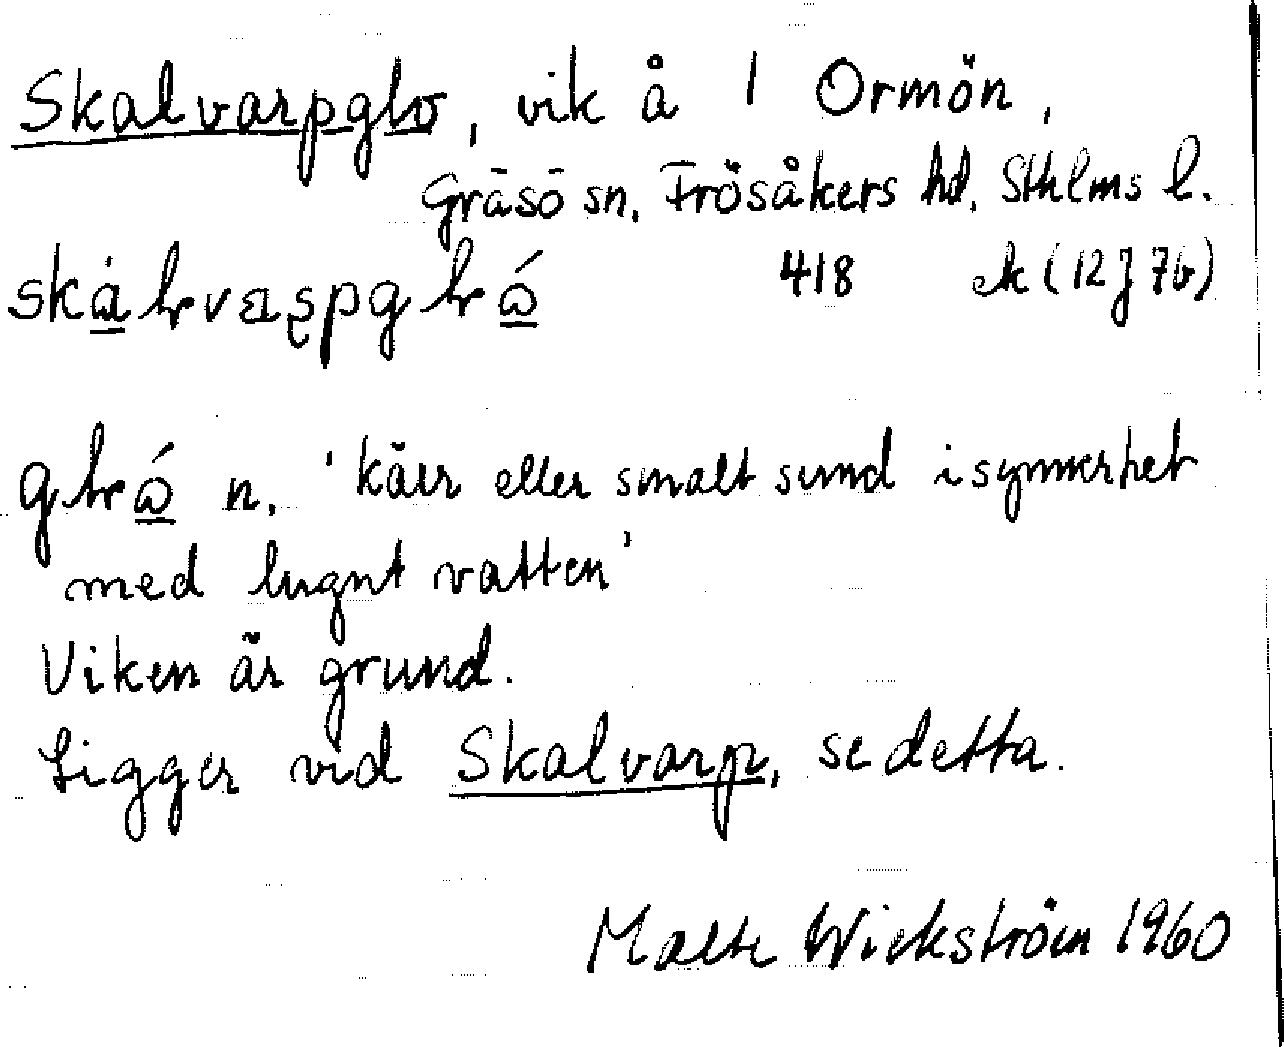 Skalvarpglo, vik å 1 Ormön,
Gräsö sn, Frösåkers hd, Sthlms l.
418 ek (12J 7b)
n. 'kärr eller smalt sund isynnerhet
med lugnt vatten'
Viken är grund.
Ligger vid Skalvarp, se detta.
Malte Wickström 1960